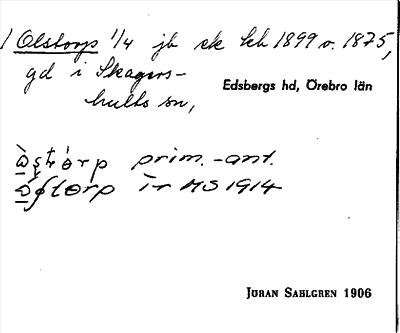 1 Olstorp 1/4 jb sk lch 1899 o. 1875,
gd i Skagers-
hults sn,
Edsbergs hd, Örebro län
prim. -ant.
ır MS 1914
JÖRAN SAHLGREN 1906